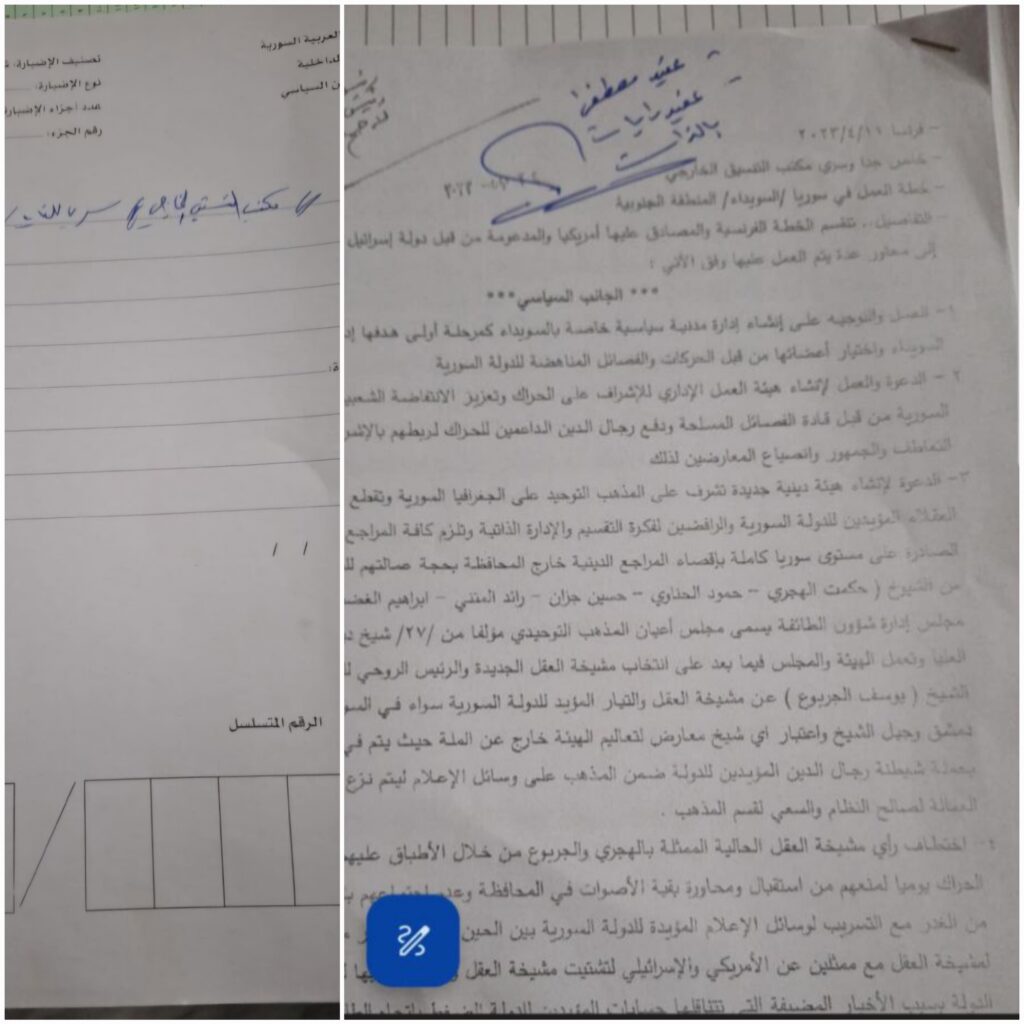 العربية السورية
الداخلية
ن السياسي
تصنيف الإضبارة:
نوع الإضبارة:
عدد أجزاء الإضبارة
رقم الجزء:
مكتب التنسيق الخارجي
الرقم المتسلسل
عقيد مصطفى
عقيد رايات
بالذات
- فرنسا ٢٠٢٣/٤/١١
- خاص جدا وسري مكتب التنسيق الخارجي
- خطة العمل في سوريا /السويداء/ المنطقة الجنوبية
- التفاصيل.. تنقسم الخطة الفرنسية والمصادق عليها أمريكيا والمدعومة من قبل دولة إسرائيل
إلى محاور عدة يتم العمل عليها وفق الآتي :
*** الجانب السياسي ***
١- العمل والتوجيه على إنشاء إدارة مدنية سياسية خاصة بالسويداء كمرحلة أولى هدفها إد
السويداء واختيار أعضائها من قبل الحركات والفصائل المناهضة للدولة السورية
٢- الدعوة والعمل لإنشاء هيئة العمل الإداري للإشراف على الحراك وتعزيز الانتفاضة الشعبي
السورية من قبل قادة الفصائل المسلحة ودفع رجال الدين الداعمين للحراك لربطهم بالإشر
التعاطف والجمهور وانصياع المعارضين لذلك
٣- الدعوة لإنشاء هيئة دينية جديدة تشرف على المذهب التوحيد على الجغرافيا السورية وتقطع
العقلاء المؤيدين للدولة السورية والرافضين لفكرة التقسيم والإدارة الذاتية وتلزم كافة المراجع
الصادرة على مستوى سوريا كاملة بإقصاء المراجع الدينية خارج المحافظة بحجة صالتهم لل
من الشيوخ ( حكمت الهجري - حمود الحناوي - حسين جزان - رائد المتني - ابراهيم الغضـ
مجلس إدارة شؤون الطائفة يسمى مجلس أعيان المذهب التوحيدي مؤلفا من /٢٧/ شيخ د
العليا وتعمل الهيئة والمجلس فيما بعد على انتخاب مشيخة العقل الجديدة والرئيس الروحي لل
الشيخ ( يوسف الجربوع ) عن مشيخة العقل والتيار المؤيد للدولة السورية سواء في السو
دمشق وجبل الشيخ واعتبار أي شيخ معارض لتعاليم الهيئة خارج عن الملة حيث يتم في
بعملة شيطنة رجال الدين المؤيدين للدولة ضمن المذهب على وسائل الإعلام ليتم نزع
العمالة لصالح النظام والسعي لقسم المذهب .
٤- اختطاف رأي مشيخة العقل الحالية الممثلة بالهجري والجربوع من خلال الأطباق عليهم
الحراك يوميا لمنعهم من استقبال ومحاورة بقية الأصوات في المحافظة وعدم اجتماعهم
من الغدر مع التسريب لوسائل الإعلام المؤيدة للدولة السورية بين الحين
لمشيخة العقل مع ممثلين عن الأمريكي والإسرائيلي لتشتيت مشيخة العقل
الدولة بسبب الأخبار المضيفة التي تتناقلها حسابات المؤيدين للدولة